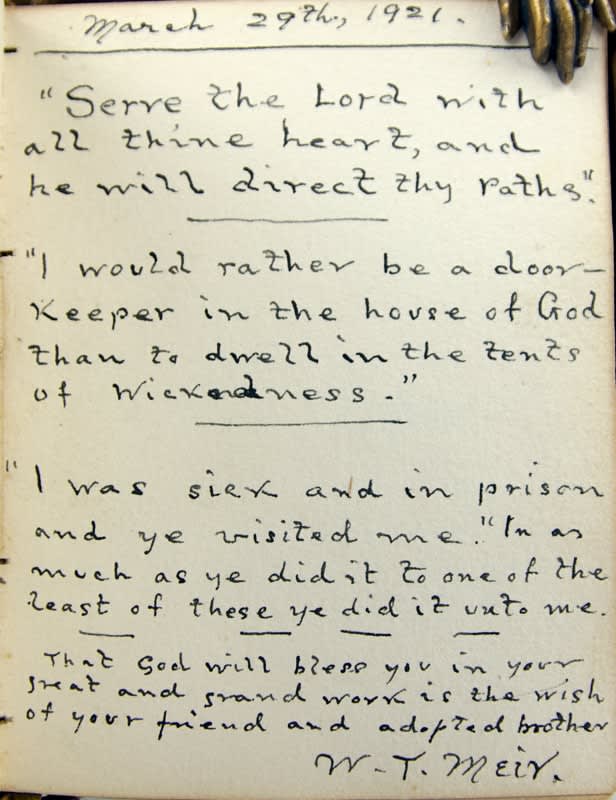 March 29th, 1921.
"Serve the Lord with
all thine heart, and
he will direct thy Paths."
"I would rather be a door-
Keeper in the house of God
than to dwell in the tents
of Wickedness."
"I was sick and in prison
and ye visited me." In as
much as ye did it to one of the
least of these ye did it unto me.
That God will bless you in your
great and grand work is the wish
of your friend and adopted brother
W. T. Meir.